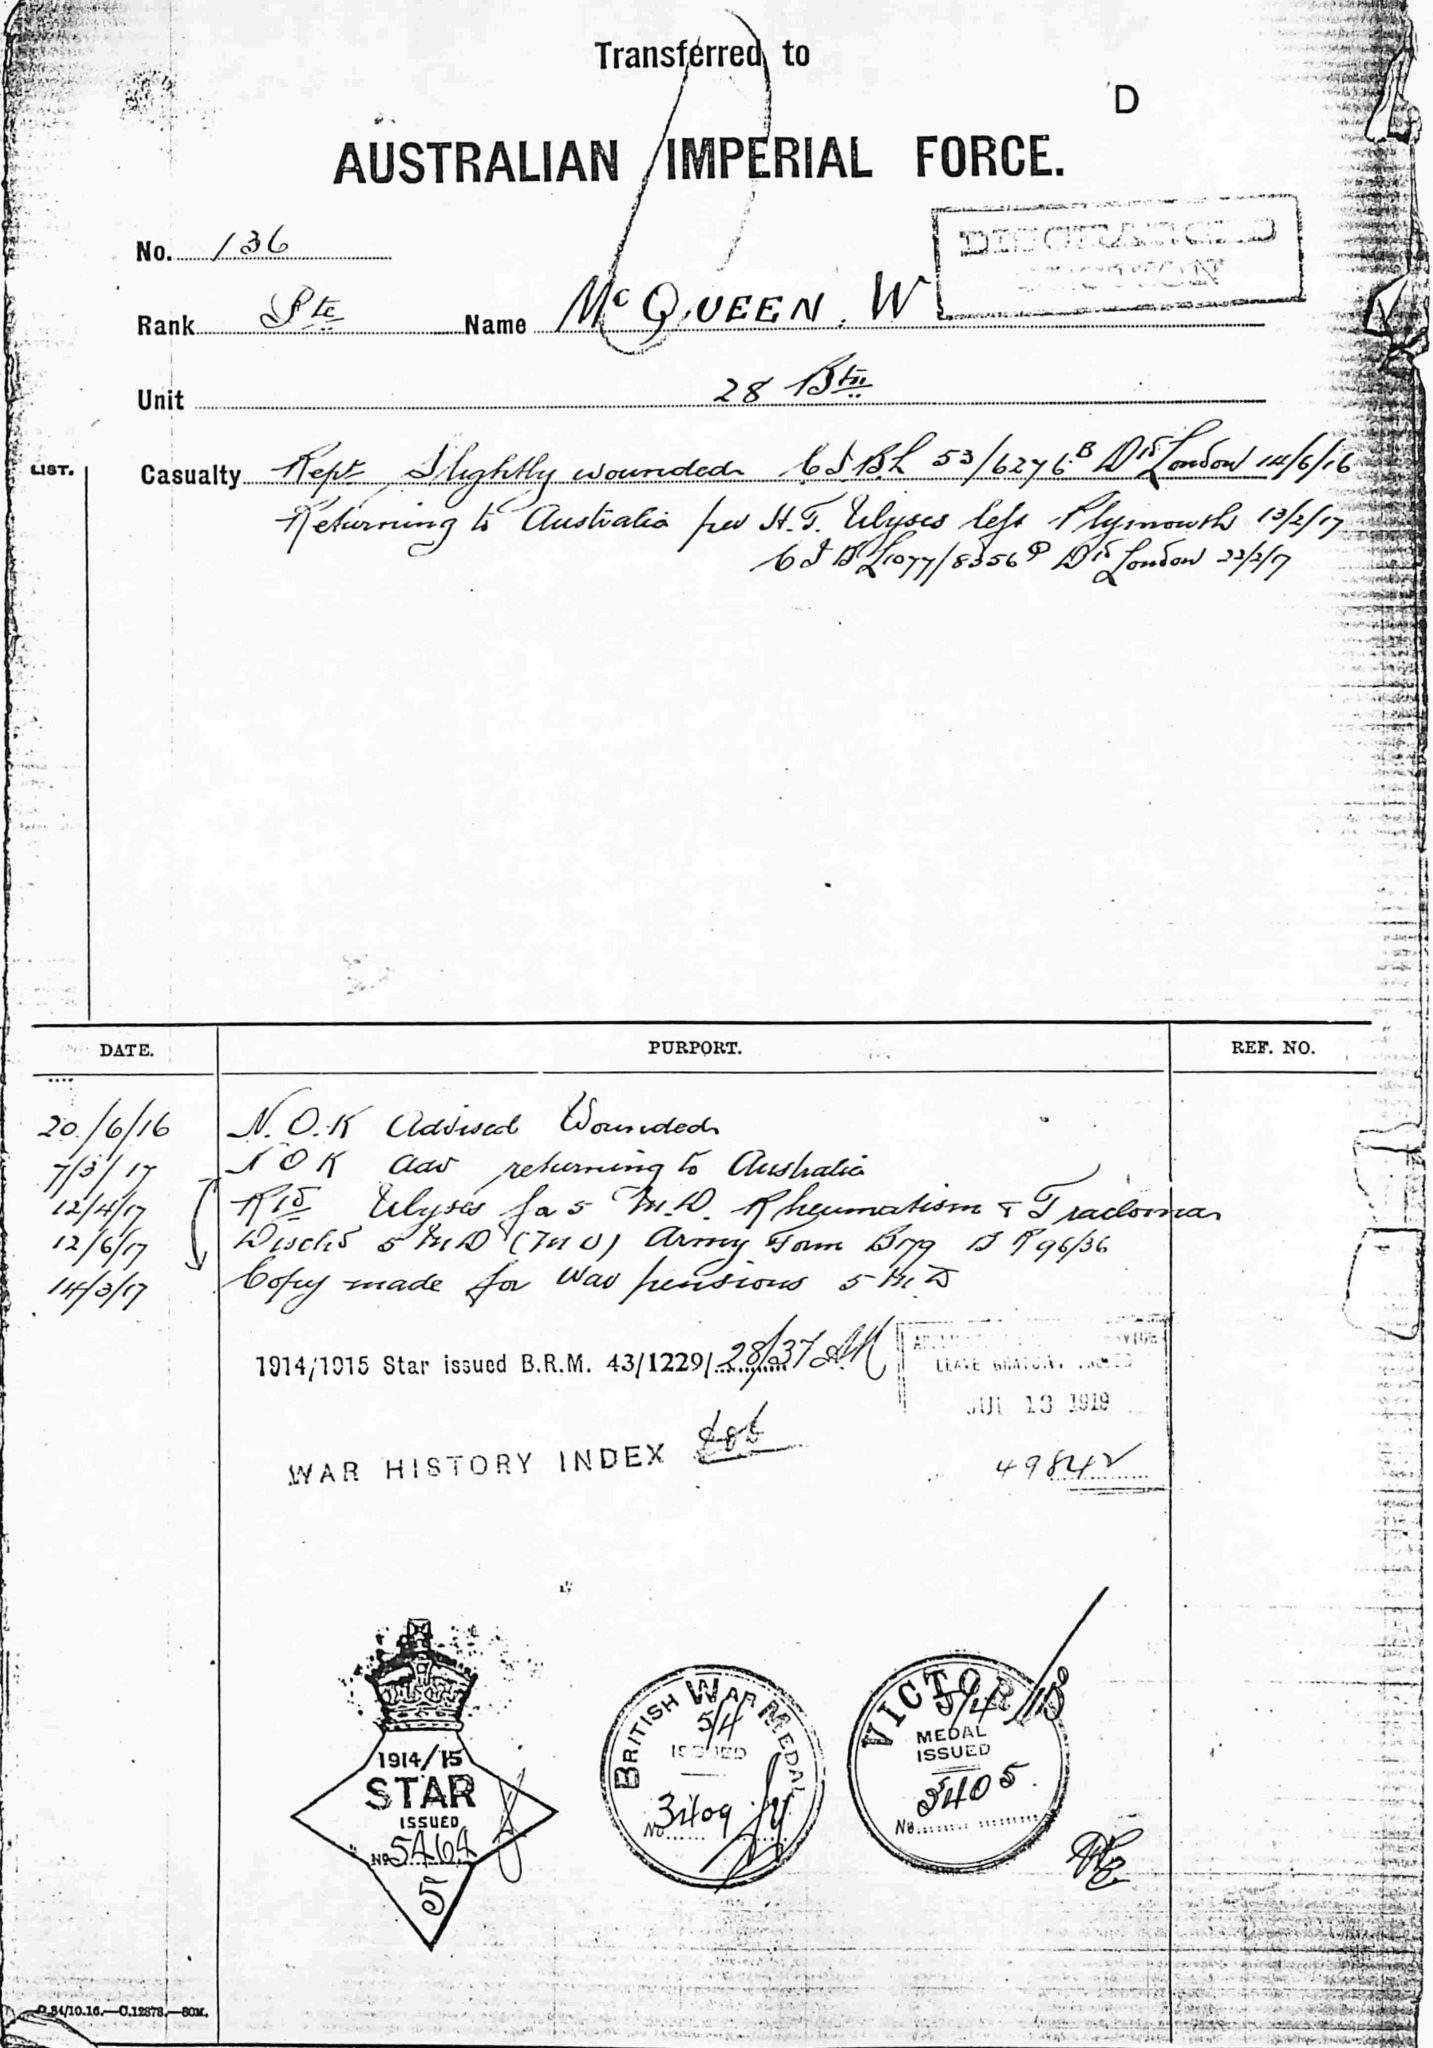 Transferred to
D
AUSTRALIAN IMPERIAL FORCE.
No. 136
DISCHARGED
SECTION
Rank Pte Name McQUEEN. W
Unit 28 Btn
LIST.
Casualty Rept Slightly wounded C I B L 53/6276 B Dtd London 14/6/16
Returning to Australia per H.T. Ulyses left Plymouth 13/2/17
C I B L1077/8356 Dtd London 22/2/17
DATE. PURPORT. REF. NO.
20/6/16 N.O.K Advised Wounded
7/3/17 N O K adv returning to Australia
12/4/17 Rtd Ulyses for 5 M.D. Rheumatism & Tracloma
12/6/17 Dischd 5 M D (M U) Army Form B179 B R 96/36
14/3/17 Copy made for war pensions 5 M.D
1914/1915 Star issued B.R.M. 43/1229/ 28/37
LEAVE GRATUITY
JUL 13 1919
WAR HISTORY INDEX
4984
1914/15
STAR
ISSUED
No 5464
5
BRITISH WAR MEDAL
5/4
ISSUED
No 3409
VICTORY
5/4
MEDAL
ISSUED
No. 3405
D.84/10.16.—C.12878.—50M.